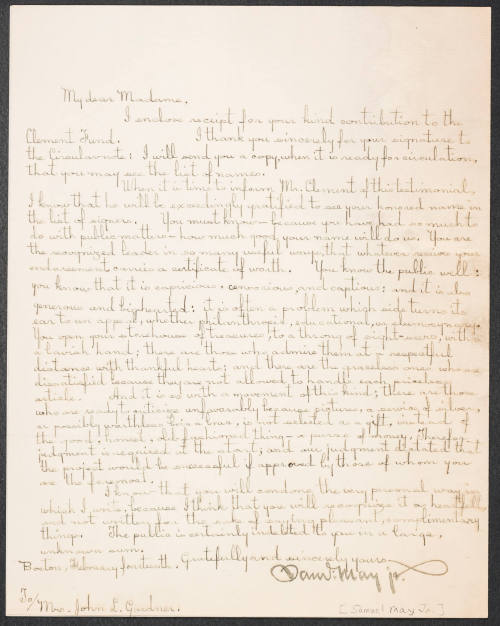 My dear Madame,
I enclose receipt for your kind contribution to the
Clement Fund. I thank you sincerely for your signature to
the Circular note: I will send you a copy, when it is ready for circulation,
that you may see the list of names.
When it is time to inform Mr. Clement of this testimonial,
I know that he will be exceedingly gratified to see your honored name in
the list of signers. You must know – because you have had so much to
do with public matters – how much good your name will do us. You are
the recognized leader in so many useful ways, that whatever secures your
endorsement carries a certificate of worth. You know the public well:
you know that it is capricious, censorious, and captious: and it is also
generous and bighearted: it is often a problem which side turns its
ear to an appeal, whether philanthropic, educational, or eleemosynary.
You open your storehouse of treasures, to a throng of sight-seers, with
a lavish hand; there are those who admire them at a respectful
distance with thankful heart; and there are the graceless ones who are
dissatisfied because they are not allowed to handle each priceless
article. And it is so with a movement of this kind; there are those
who are ready to criticise unfavorably because pictures, a service of silver,
or possibly writable is a bran, is not selected as a gift, instead of
the good, honest, old-fashioned thing – a purse of money. Therefore
judgment is required at the start; and our judgment dictated that
the project would be successful if approved by those of whom you
are the foremost.
I know that you will condone the very personal way in
which I write, because I think that you will recognize it as heartfelt,
and not written for the sake of saying pleasant, complimentary
things. The public is certainly indebted to you in a large,
unknown sum.
Gratefully and sincerely yours
Boston, February fourteenth.
Saml. May jr.
To/
Mrs. John L. Gardner.
[Samuel May Jr.]